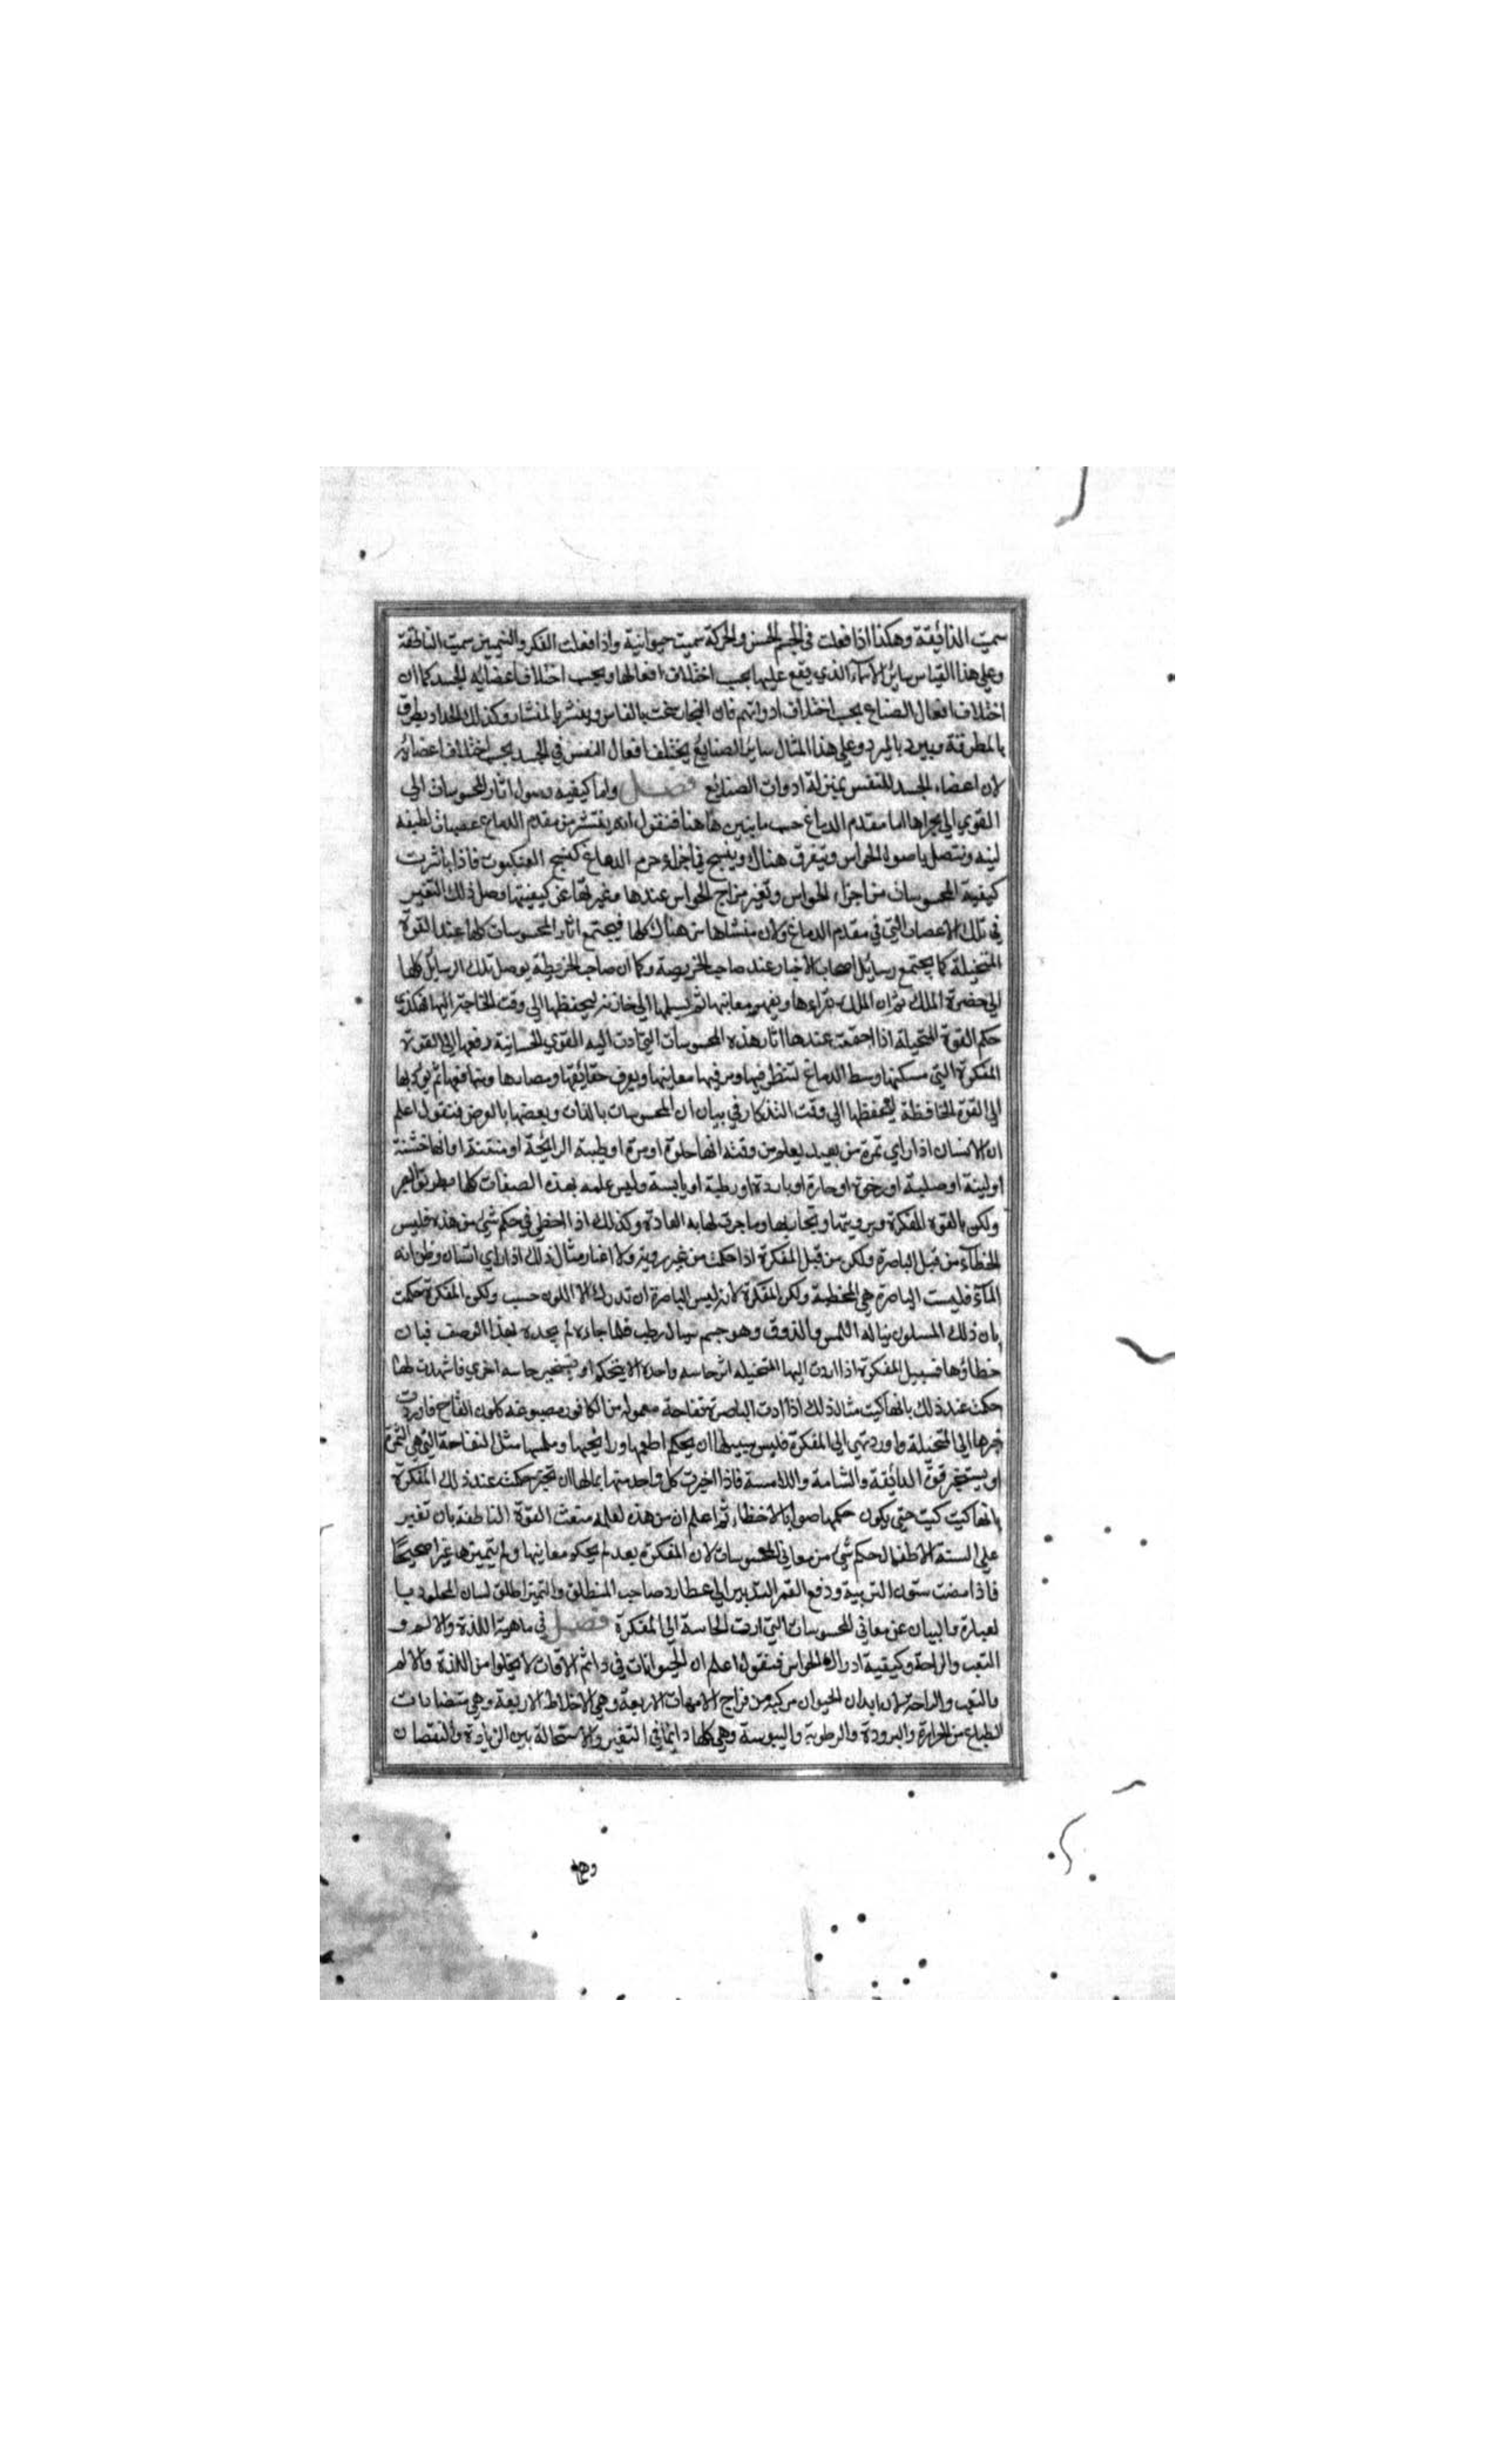 سميت الذائقة وهكذا اذا فعلت في الجسم الحس والحركة سميت حيوانية واذا فعلت الفكر والتمييز سميت الناطقة
وعلي هذا القياس سائر الاسماء الذي يقع عليها بحسب اختلاف افعالها وبحسب اختلاف اعضاية الجسد كما ان
اختلاف افعال الصناع بحسب اختلاف ادواتهم فان النجار ينحت بالفاس وينشر بالمنشار وكذلك الحداد يطرق
بالمطرقة ويبرد بالمبرد وعلي هذا المثال ساير الصنايع يختلف افعال النفس في الجسد بحسب اختلاف اعضائه
لان اعضاء الجسد للنفس بمنزلة ادوات الصنايع فصل واما كيفية وصول اثار المحسوسات الي
القوي الي مجراها اما مقدم الدماغ حسب ما نبين هاهنا فنقول انه ينتشر من مقدم الدماغ عصبات لطيفة
لينه وتتصل باصول الحواس وتتفرق هناك وينسج في اجزاء جرم الدماغ كنسج العنكبوت فاذا باشرت
كيفية المحسوسات من اجزاء الحواس وتغير مزاج الحواس عندها وغيرتها عن كيفيتها وصل ذلك التغير
في تلك الاعصاب التي في مقدم الدماغ ولان منشاها من هناك كلها فيجتمع اثار المحسوسات كلها عند القوة
المتخيلة كما يجتمع رسائل اصحاب الاخبار عند صاحب الخريطة وكما ان صاحب الخريطة يوصل تلك الرسائل كلها
الي حضرة الملك ثم ان الملك يقراءها ويفهم معانيها ثم يسلمها الي خازنه ليحفظها الي وقت الحاجة اليها فهكذي
حكم القوة المتخيلة اذا اجتمعت عندها اثار هذه المحسوسات التي ادت اليه القوي الحساسية رفعها الي القوة
المفكرة التي مسكنها وسط الدماغ لتنظر فيها ومعانيها ويعرف حقائقها ومضارها ومنافعها ثم يؤديها
الي القوة الحافظة ليحفظها الي وقت التذكار في بيان ان المحسوسات بالذات وبعضها بالعرض فنقول اعلم
ان الانسان اذا راي ثمرة من بعيد يعلم من وقته انها حلوة او مرة او طيبة الرائحة او منتنة او انها خشنة
او لينة او صلبة او رخوة او حارة او باردة او رطبة او يابسة وليس علمه بهذه الصفات كلها بطريق البصر
ولكن بالقوة المفكرة وبرويتها وتجاربها وما جرت لها به العادة وكذلك اذا اخطي في حكم شئ من هذه فليس
الخطاء من قبل الباصرة ولكن من قبل المفكرة اذا حكمت من غير روية ولا اعتبار مثال ذلك اذا راي انسان وظن انه
الماء فليست الباصرة هي المخطية ولكن المفكرة لانه ليس للباصرة ان تدرك الا اللون حسب ولكن المفكرة حكمت
بان ذلك المسلون يناله اللمس والذوق وهو جسم سيال رطب فلما جاءه لم يجده بهذا الوصف فبان
خطاؤها فسبيل المفكرة اذا اردت اليها المتخيله اثر حاسه واحدة الا يتحكم او يستخبر حاسه اخري فاشهدت لها
حكمت عند ذلك بانها كيت مثال ذلك اذا ادت الباصرة تفاحة معموله من الكافور مصبوغه كلون التفاح فاوردت
خبرها الي المتخيلة واوردتهي الي المفكرة فليس سبيلها ان يحكم اطعمها ورائحتها وملمسها مثل التفاحة التي هي الثمرة
او يستخبر قوة الذائقة والشامة واللامسة فاذا اخبرت كل واحد منها بمالها ان تخبر حكمت عند ذلك المفكرة
بانها كيت كيت حتي يكون حكمها صوابا لا خطاء ثم اعلم ان من هذه لعلة منعت القوة الناطقة بان تغير
علي السنة الاطفال حكم شئ من معاني المحسوسات لان المفكرة بعد لم يحكم معانيها ولم يتميزها تميزا صحيحا
فاذا مضت ستون التربية ودفع القمر التدبير الي عطارد صاحب المنطلق والتميز اطلق لسان المولود با
لعبارة والبيان عن معاني المحسوسات التي ادت الحاسة الي المفكرة فصل في ماهية اللذة والالم و
التعب والراحة وكيفية ادراك الحواس فنقول اعلم ان الحيوانات في دائم الاوقات لا يخلوا من اللذة والالم
والتعب والراحة لان ابدان الحيوان مركبة من مزاج الامهات الاربعة وهي الاخلاط الاربعة وهي متضادات
الطبايع من الحرارة والبرودة والرطوبة واليبوسة وهي كلها دائما في التغير والاستحالة بين الزيادة والنقصان